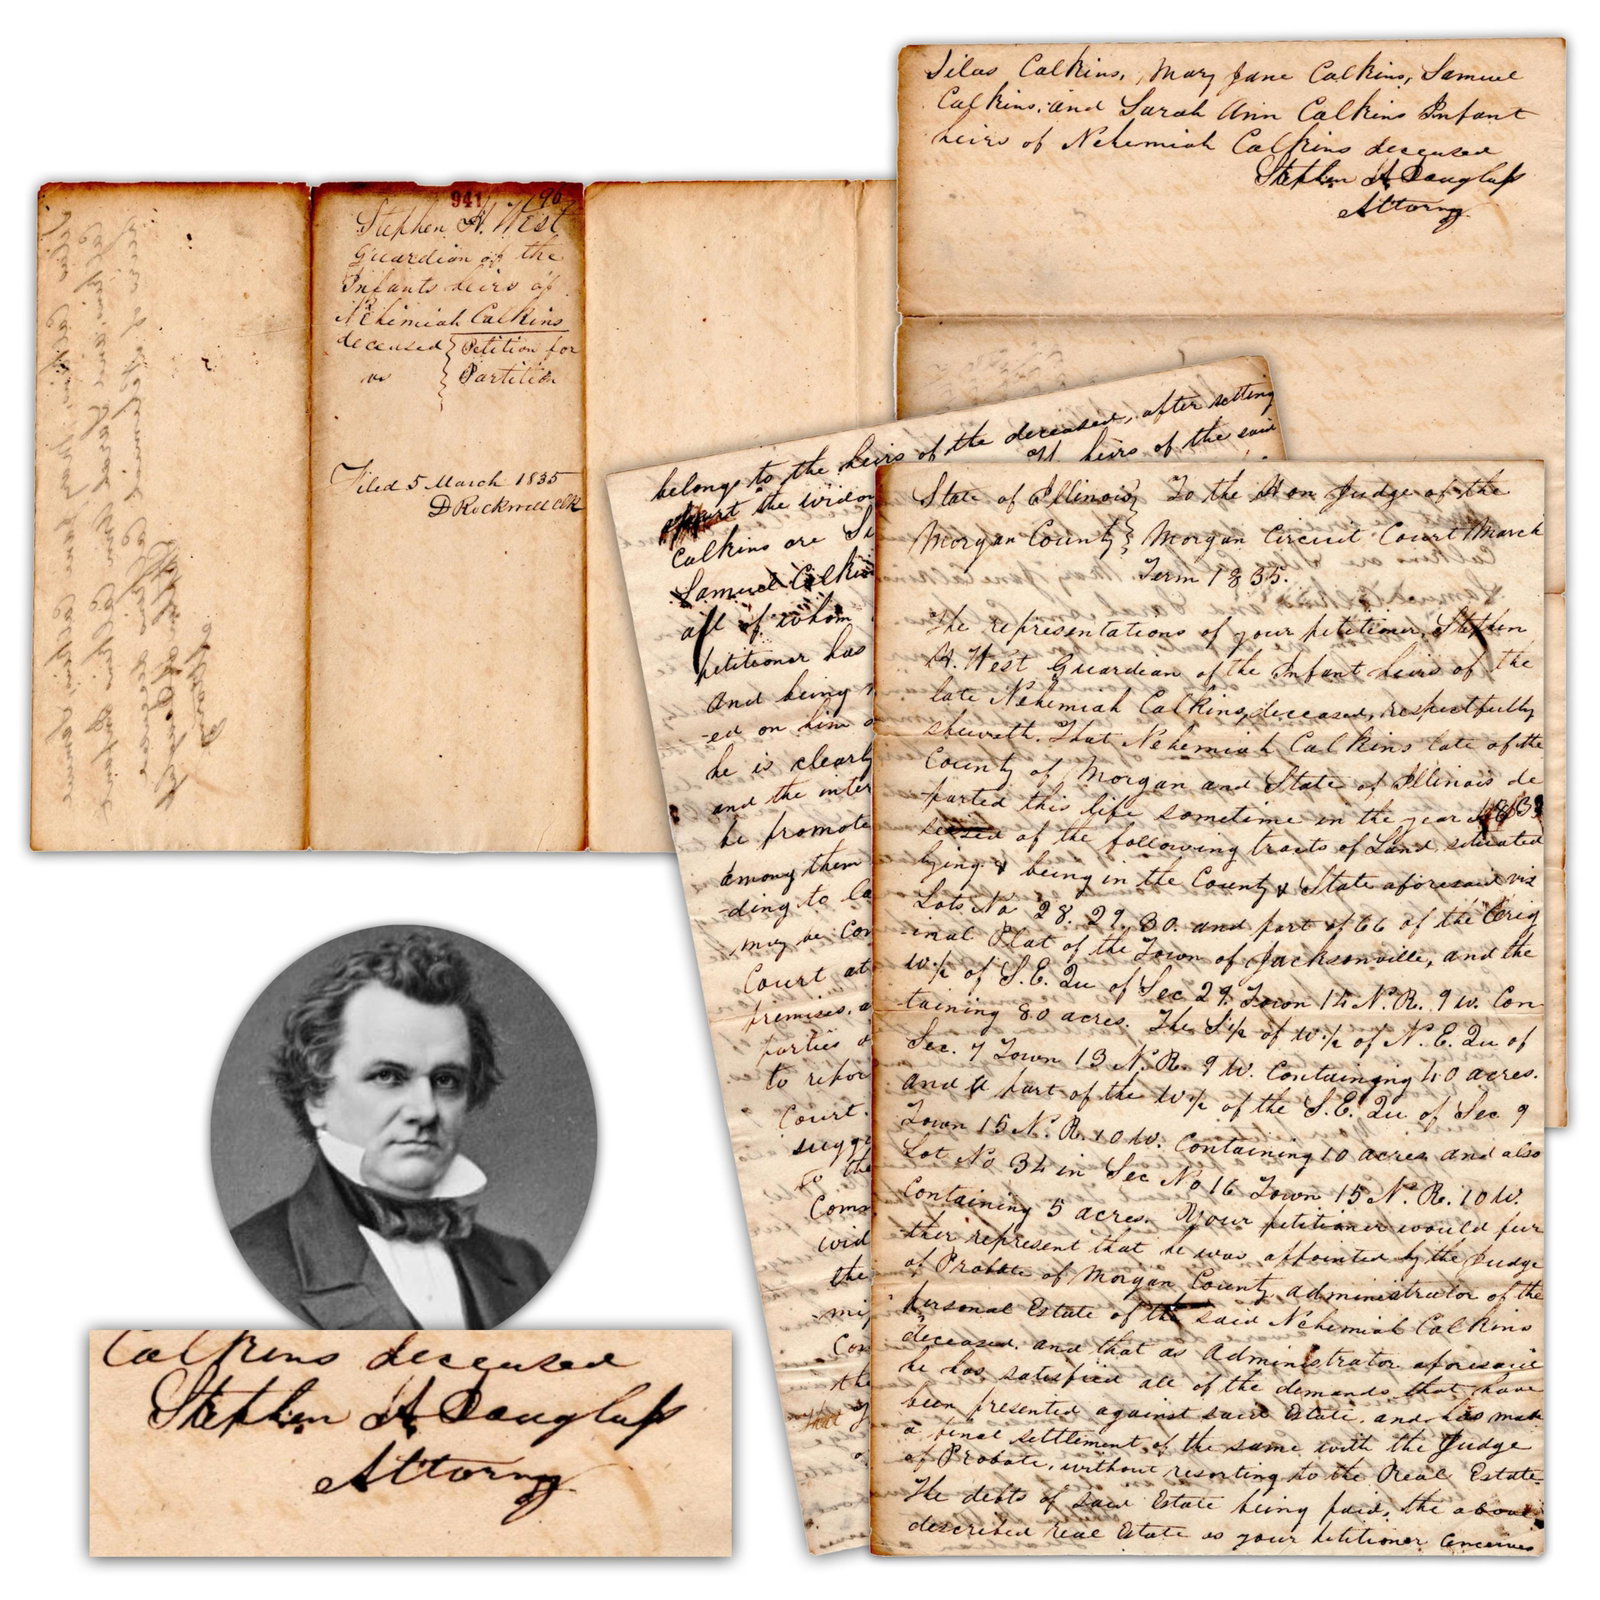 Silas Calkins, Mary Jane Calkins, Samuel
Calkins, and Sarah Ann Calkins Infant
heirs of Nehemiah Calkins deceased
Stephen A. Douglass
Attorney
941
Stephen A. West
Guardian of the
Infants heirs of
Nehimiah Calkins
deceased } Petition for
vs } Partition
Filed 5 March 1835
D Rockwell Clk
belongs to the heirs of the deceased, after setting
apart the widow
heirs of the said
Calkins are Si
Samuel Calkins
all of whom
petitioner has
and being
-ed on him
he is clearly
and the inter
be promote
among them
-ding to la
may be con
Court at
premises, a
parties
to repor
Court.
sugg
to the
Comm
wid
the
mi
Con
the
that
State of Illinois } To the Hon Judge of the
Morgan County } Morgan Circuit Court March
Term 1835.
The representations of your petitioner, Stephen
A. West Guardian of the Infant heirs of the
late Nehemiah Calkins, deceased, respectfully
sheweth. That Nehemiah Calkins late of the
County of Morgan and State of Illinois de
parted this life sometime in the year 1833
seized of the following tracts of Land situated
lying & being in the County & State aforesaid viz
Lots No 28. 29. 30. and part of 66 of the Orig
-inal Plat of the Town of Jacksonville, and the
W.½ of S.E. Qu of Sec 29. Town 14 N. R. 9 W. Con
taining 80 acres. The S½ of W.½ of N.E. Qu of
Sec. 7 Town 13 N. R. 9 W. Containing 40 acres.
and a part of the W½ of the S.E. Qu of Sec 9
Town 15 N. R. 10 W. Containing 10 acres and also
Lot No 34 in Sec No 16 Town 15 N. R. 10 W.
Containing 5 acres. Your petitioner would fur
ther represent that he was appointed by the Judge
of Probate of Morgan County, administrator of the
personal Estate of the said Nehemiah Calkins
deceased, and that as Administrator aforesaid
he has satisfied all of the demands that have
been presented against said Estate, and has made
a final settlement of the same with the Judge
of Probate, without resorting to the Real Estate
The debts of said Estate being paid, the above
described real Estate as your petitioner conceives
Calkins deceased
Stephen A. Douglass
Attorney